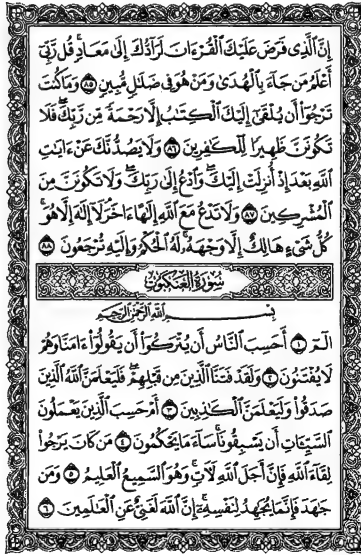 إِنَّ ٱلَّذِى فَرَضَ عَلَيْكَ ٱلْقُرْءَانَ لَرَآدُّكَ إِلَىٰ مَعَادٍ ۚ قُل رَّبِّىٓ
أَعْلَمُ مَن جَآءَ بِٱلْهُدَىٰ وَمَنْ هُوَ فِى ضَلَـٰلٍ مُّبِينٍ ٨٥ وَمَا كُنتَ
تَرْجُوٓا۟ أَن يُلْقَىٰٓ إِلَيْكَ ٱلْكِتَـٰبُ إِلَّا رَحْمَةً مِّن رَّبِّكَ ۖ فَلَا
تَكُونَنَّ ظَهِيرًا لِّلْكَـٰفِرِينَ ٨٦ وَلَا يَصُدُّنَّكَ عَنْ ءَايَـٰتِ
ٱللَّهِ بَعْدَ إِذْ أُنزِلَتْ إِلَيْكَ ۖ وَٱدْعُ إِلَىٰ رَبِّكَ ۖ وَلَا تَكُونَنَّ مِنَ
ٱلْمُشْرِكِينَ ٨٧ وَلَا تَدْعُ مَعَ ٱللَّهِ إِلَـٰهًا ءَاخَرَ ۘ لَآ إِلَـٰهَ إِلَّا هُوَ ۚ
كُلُّ شَىْءٍ هَالِكٌ إِلَّا وَجْهَهُۥ ۚ لَهُ ٱلْحُكْمُ وَإِلَيْهِ تُرْجَعُونَ ٨٨
سُورَةُ العَنكَبُوت
بِسْمِ ٱللَّهِ ٱلرَّحْمَـٰنِ ٱلرَّحِيمِ
الٓمٓ ١ أَحَسِبَ ٱلنَّاسُ أَن يُتْرَكُوٓا۟ أَن يَقُولُوٓا۟ ءَامَنَّا وَهُمْ
لَا يُفْتَنُونَ ٢ وَلَقَدْ فَتَنَّا ٱلَّذِينَ مِن قَبْلِهِمْ ۖ فَلَيَعْلَمَنَّ ٱللَّهُ ٱلَّذِينَ
صَدَقُوا۟ وَلَيَعْلَمَنَّ ٱلْكَـٰذِبِينَ ٣ أَمْ حَسِبَ ٱلَّذِينَ يَعْمَلُونَ
ٱلسَّيِّـَٔاتِ أَن يَسْبِقُونَا ۚ سَآءَ مَا يَحْكُمُونَ ٤ مَن كَانَ يَرْجُوا۟
لِقَآءَ ٱللَّهِ فَإِنَّ أَجَلَ ٱللَّهِ لَـَٔاتٍ ۚ وَهُوَ ٱلسَّمِيعُ ٱلْعَلِيمُ ٥ وَمَن
جَـٰهَدَ فَإِنَّمَا يُجَـٰهِدُ لِنَفْسِهِۦٓ ۚ إِنَّ ٱللَّهَ لَغَنِىٌّ عَنِ ٱلْعَـٰلَمِينَ ٦